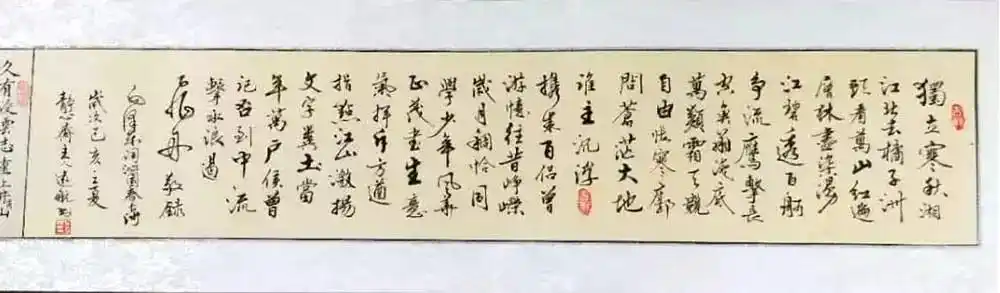 獨立寒秋湘
江北去橘子洲
頭看萬山紅遍
層林盡染漫
江碧透百舸
爭流鷹擊長
空魚翔淺底
萬類霜天競
自由悵寥廓
問蒼茫大地
誰主沉浮
攜來百侶曾
游憶往昔崢嶸
歲月稠恰同
學少年風華
正茂書生意
氣揮斥方遒
指點江山激揚
文字糞土當
年萬戶侯曾
記否到中流
擊水浪遏
飛舟 敬錄
毛澤東詞沁園春
歲次己亥之夏
齋主
久有凌雲志重上井岡山